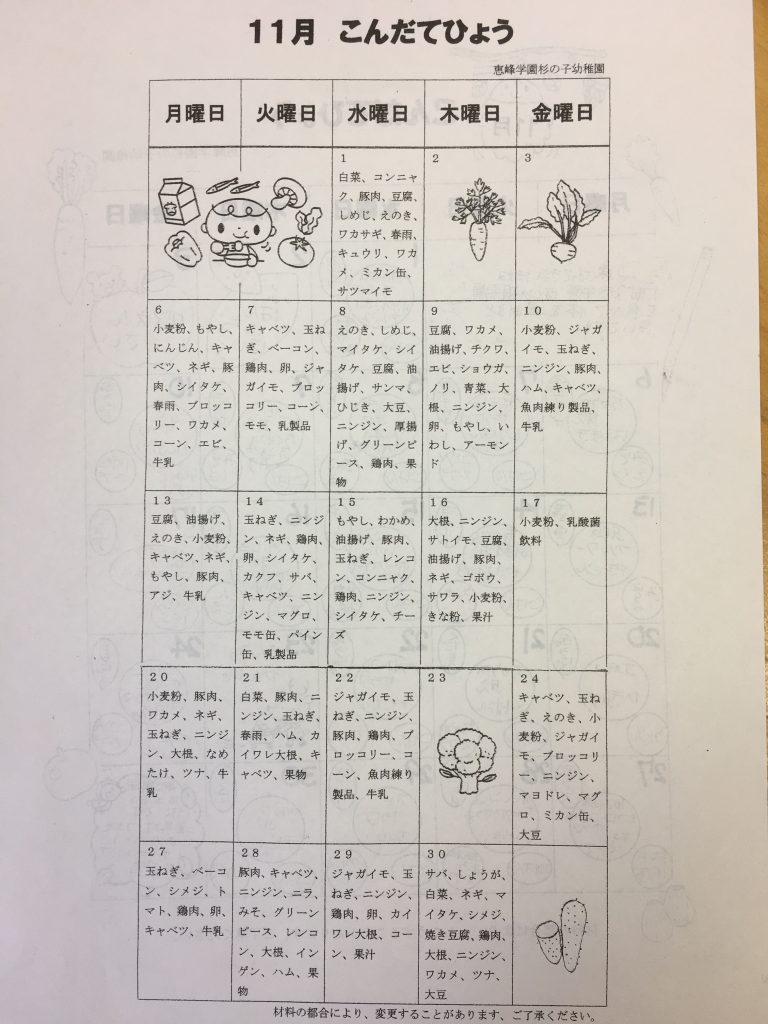 11月 こんだてひょう
恵峰学園杉の子幼稚園
月曜日 火曜日 水曜日 木曜日 金曜日
1
白菜、コンニャ
ク、豚肉、豆腐、
しめじ、えのき、
ワカサギ、春雨、
キュウリ、ワカ
メ、ミカン缶、
サツマイモ
2
3
6
小麦粉、もやし、
にんじん、キャ
ベツ、ネギ、豚
肉、シイタケ、
春雨、ブロッコ
リー、ワカメ、
コーン、エビ、
牛乳
7
キャベツ、玉ね
ぎ、ベーコン、
鶏肉、卵、ジャ
ガイモ、ブロッ
コリー、コーン、
モモ、乳製品
8
えのき、しめじ、
マイタケ、シイ
タケ、豆腐、油
揚げ、サンマ、
ひじき、大豆、
ニンジン、厚揚
げ、グリーンピ
ース、鶏肉、果
物
9
豆腐、ワカメ、
油揚げ、チクワ、
エビ、ショウガ、
ノリ、青菜、大
根、ニンジン、
卵、もやし、い
わし、アーモン
ド
10
小麦粉、ジャガ
イモ、玉ねぎ、
ニンジン、豚肉、
ハム、キャベツ、
魚肉練り製品、
牛乳
13
豆腐、油揚げ、
えのき、小麦粉、
キャベツ、ネギ、
もやし、豚肉、
アジ、牛乳
14
玉ねぎ、ニンジ
ン、ネギ、鶏肉、
卵、シイタケ、
カクフ、サバ、
キャベツ、ニン
ジン、マグロ、
モモ缶、パイン
缶、乳製品
15
もやし、わかめ、
油揚げ、豚肉、
玉ねぎ、レンコ
ン、コンニャク、
鶏肉、ニンジン、
シイタケ、チー
ズ
16
大根、ニンジン、
サトイモ、豆腐、
油揚げ、豚肉、
ネギ、ゴボウ、
サワラ、小麦粉、
きな粉、果汁
17
小麦粉、乳酸菌
飲料
20
小麦粉、豚肉、
ワカメ、ネギ、
玉ねぎ、ニンジ
ン、大根、なめ
たけ、ツナ、牛
乳
21
白菜、豚肉、ニ
ンジン、玉ねぎ、
春雨、ハム、カ
イワレ大根、キ
ャベツ、果物
22
ジャガイモ、玉
ねぎ、ニンジン、
豚肉、鶏肉、ブ
ロッコリー、コ
ーン、魚肉練り
製品、牛乳
23
24
キャベツ、玉ね
ぎ、えのき、小
麦粉、ジャガイ
モ、ブロッコリ
ー、ニンジン、
マヨドレ、マグ
ロ、ミカン缶、
大豆
27
玉ねぎ、ベーコ
ン、シメジ、ト
マト、鶏肉、卵、
キャベツ、牛乳
28
豚肉、キャベツ、
ニンジン、ニラ、
みそ、グリーン
ピース、レンコ
ン、大根、イン
ゲン、ハム、果
物
29
ジャガイモ、玉
ねぎ、ニンジン、
鶏肉、卵、カイ
ワレ大根、コー
ン、果汁
30
サバ、しょうが、
白菜、ネギ、マ
イタケ、シメジ、
焼き豆腐、鶏肉、
大根、ニンジン、
ワカメ、ツナ、
大豆
材料の都合により、変更することがあります、ご了承ください。